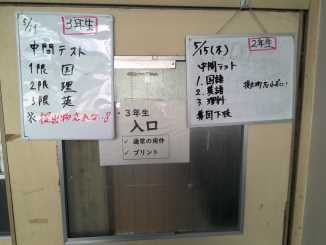 5/15
3年生
中間テスト
1限 国
2限 理
3限 英
※提出物忘れな…!!
3年生
入口
✓ 通常の用件
✓ プリント
5/15(木)
2年生
中間テスト
1. 国語
2. 英語
3. 理科
提出物忘れずに!